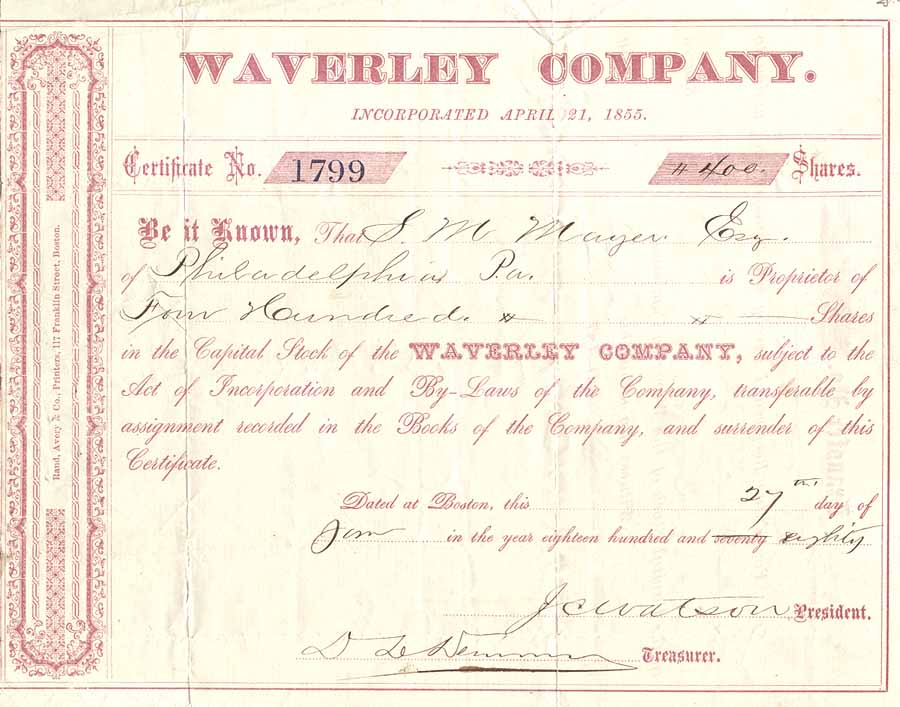 WAVERLEY COMPANY.
INCORPORATED APRIL 21, 1855.
Certificate No. 1799 # 400. Shares.
Be it Known, That S. M. Mayer Esq.
of Philadelphia Pa. is Proprietor of
Four Hundred # # Shares
in the Capital Stock of the WAVERLEY COMPANY, subject to the
Act of Incorporation and By-Laws of the Company, transferable by
assignment recorded in the Books of the Company, and surrender of this
Certificate.
Dated at Boston, this 27th day of
Jan in the year eighteen hundred and seventy eighty
J C Watson President.
Treasurer.
Rand, Avery & Co., Printers, 117 Franklin Street, Boston.